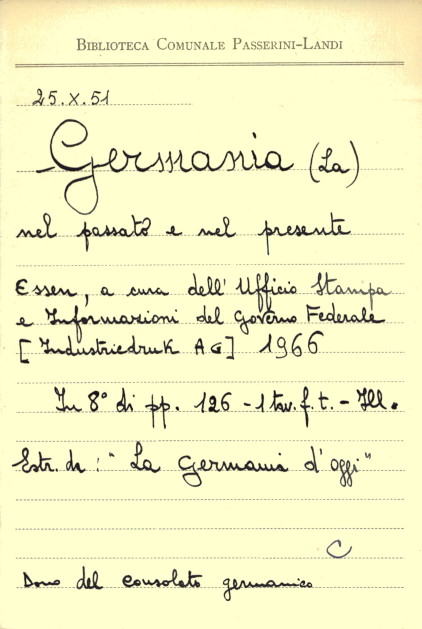 BIBLIOTECA COMUNALE PASSERINI-LANDI
25.X.51
Germania (La)
nel passato e nel presente
Essen, a cura dell' Ufficio Stampa
e Informazioni del Governo Federale
[Industriedruk AG] 1966
In 8° di pp. 126 - 1 tav. f. t. - Ill.
Estr. da: "La Germania d'oggi"
C
Dono del consolato germanico